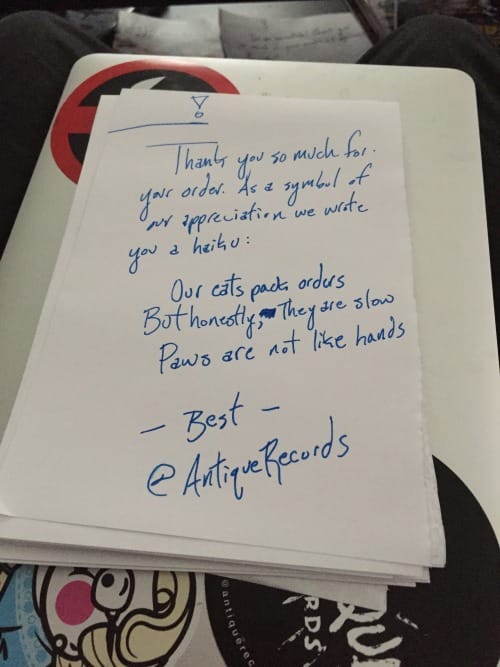 Thank you so much for
your order. As a symbol of
our appreciation we wrote
you a haiku:
Our cats pack orders
But honestly, They are slow
Paws are not like hands
— Best —
@AntiqueRecords
@antiquerec
RDS